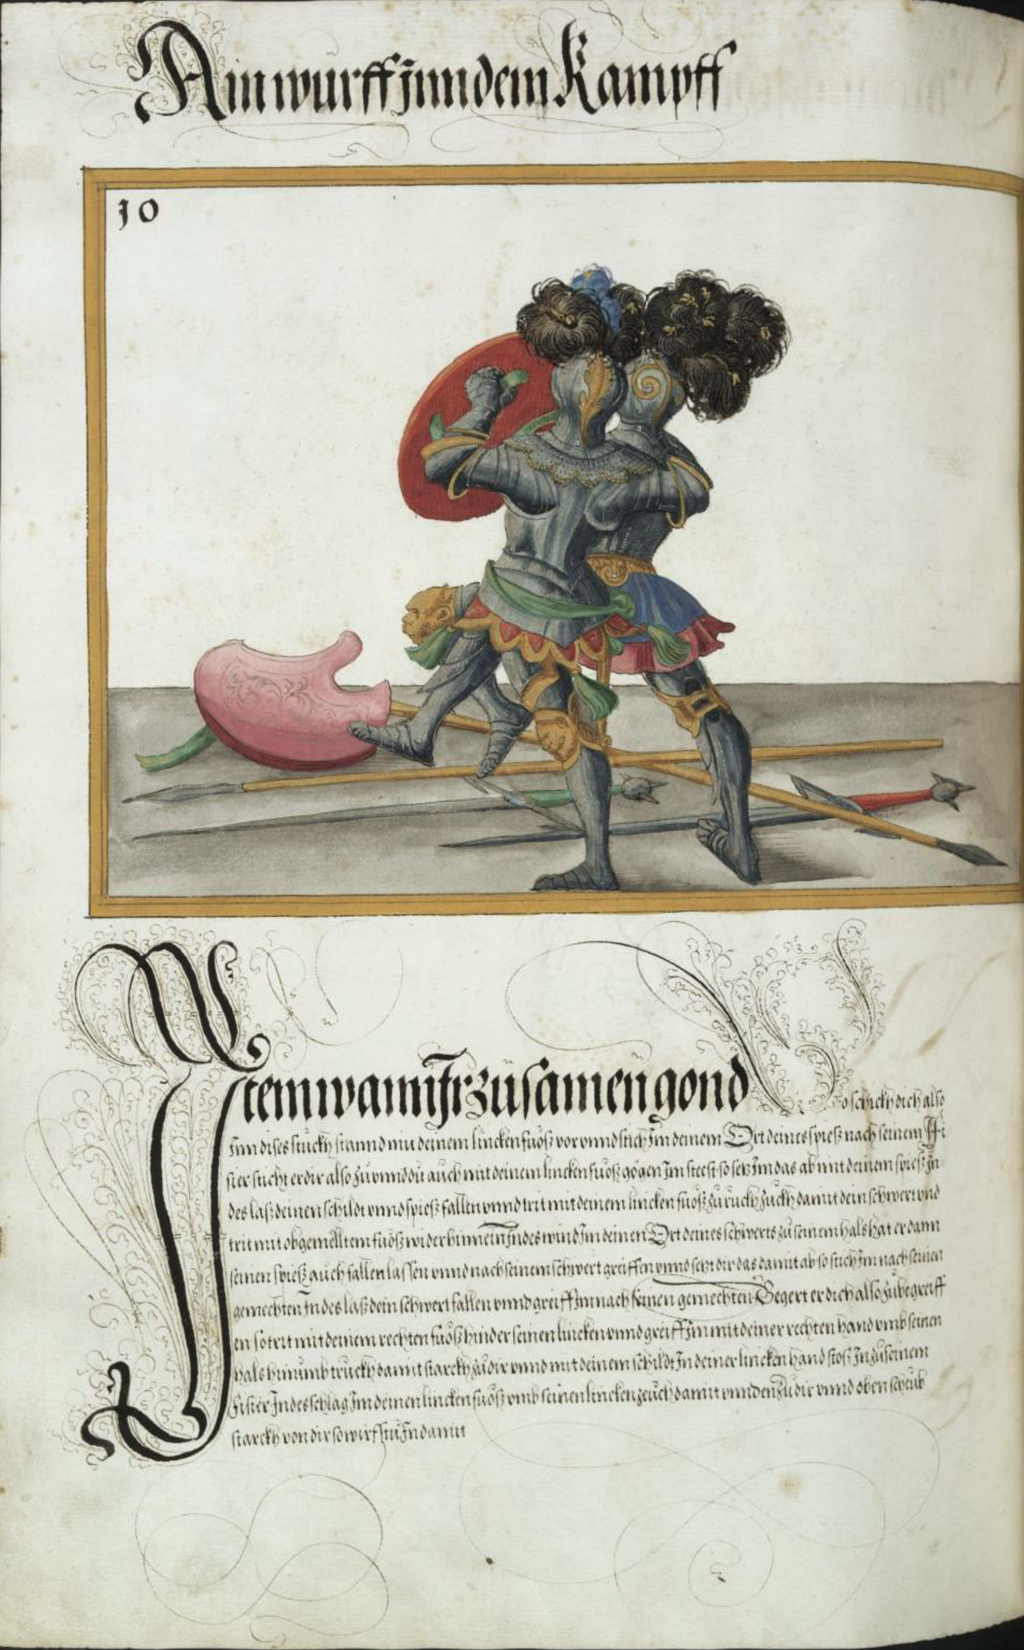 Ain wurff Jnn dem Kampff
10
Item wann Ir züsamen gond so schickh dich also
Jnn dises stuckh stannd mit deinem lincken füoß vor vnnd stich Jm deinem Ort deines spieß nach seinem Fi
sier sticht er dir also zü vnnd dü auch mit deinem lincken füoß gögen Jm steest so setz Jm das ab mit deinem spieß Jn
des laß deinen schilt vnnd spieß fallen vnnd trit mit deinem lincken füoß zü ruckh zuckh damit dein schwert vnd
trit mit obgemelltem füoß wider hinnein Jndes wind Jm deinen Ort deines schwerts zü seinem hals hat er dann
seinen spieß auch fallen lassen vnnd nach seinem schwert greiffen vnnd setzt dir das damit ab so stich Jm nach seinen
gemechten Jndes laß dein schwert fallen vnnd greiff Jm nach seinen gemechten Begert er dich also zübegreiff
en so trit mit deinem rechten füoß hinder seinen lincken vnnd greiff Jm mit deiner rechten hand vmb seinen
hals hinumb truckh damit starckh zü dir vnnd mit deinem schildt Jn deiner lincken hand stoß Jn zü seinem
Fisier Jndes schlag Jm deinen lincken füoß vmb seinen lincken zeüch damit vnnden zü dir vnnd oben scheub
starckh von dir so wirfstü Jn damit